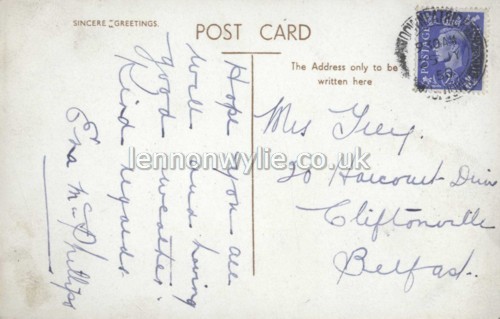 SINCERE GREETINGS.
POST CARD
The Address only to be
written here
Hope you are
well and having
good weather.
Kind regards
Ena McPhillips
Mrs
20 Harcourt Drive
Cliftonville
Belfast.
lennonwylie.co.uk
POSTAGE